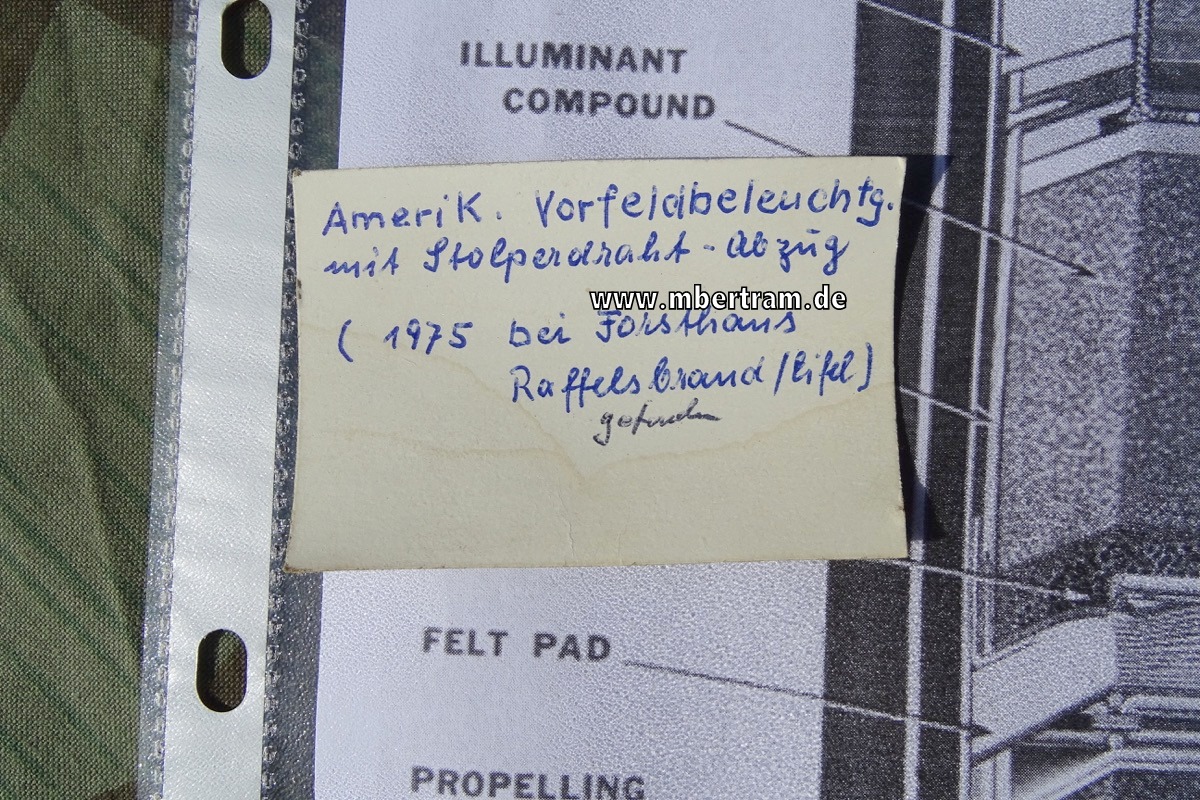 ILLUMINANT
COMPOUND
Amerik. Vorfeldbeleuchtg.
mit Stolperdraht-Abzug
www.mbertram.de
( 1975 bei Forsthaus
Raffelsbrand/Eifel)
gefunden
FELT PAD
PROPELLING